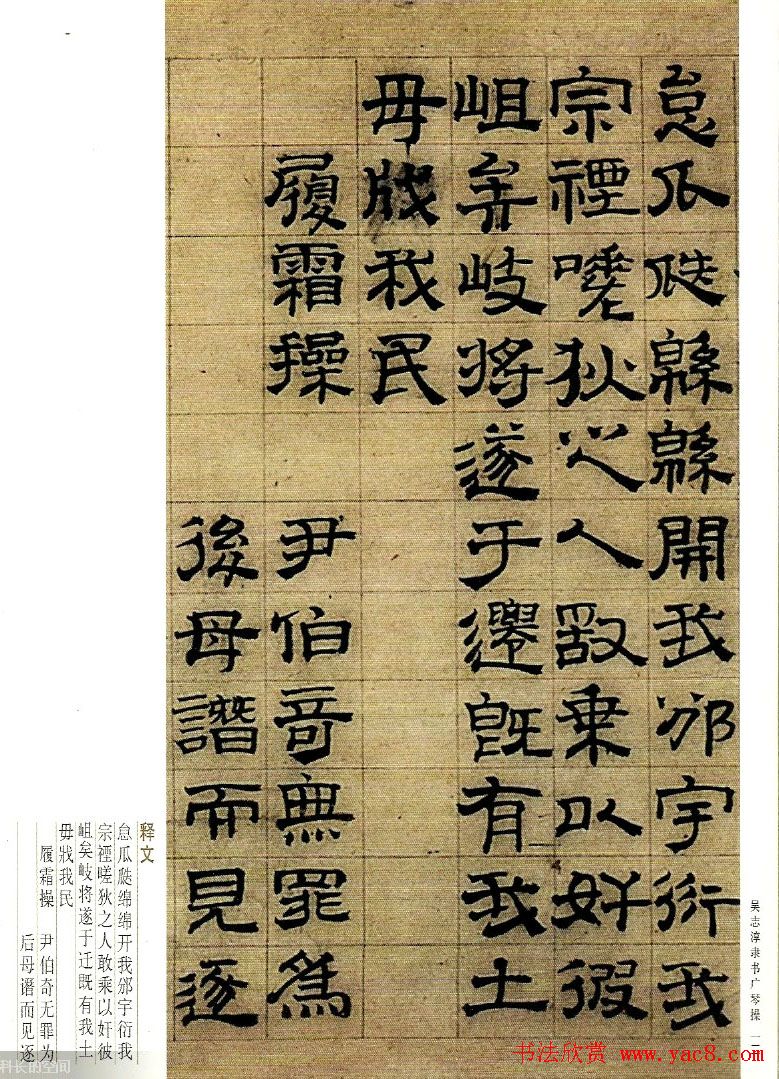 怠瓜瓞緜緜開我邠宇衍我
宗禋嗟狄之人敢乗以奸彼
岨矣岐将遂于遷既有我土
毋戕我民
履霜操 尹伯奇無罪為
後母譖而見逐
吴志淳隶书广琴操
释文
怠瓜瓞绵绵开我邠宇衍我
宗禋嗟狄之人敢乘以奸彼
岨矣岐将遂于迁既有我土
毋戕我民
履霜操 尹伯奇无罪为
后母谮而见逐
书法欣赏 www.yac8.com
科长的空间